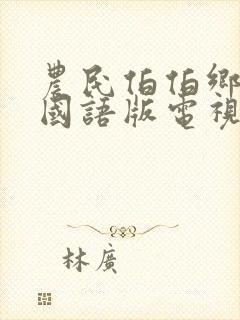 農民伯伯鄉
國語版電視
林廣